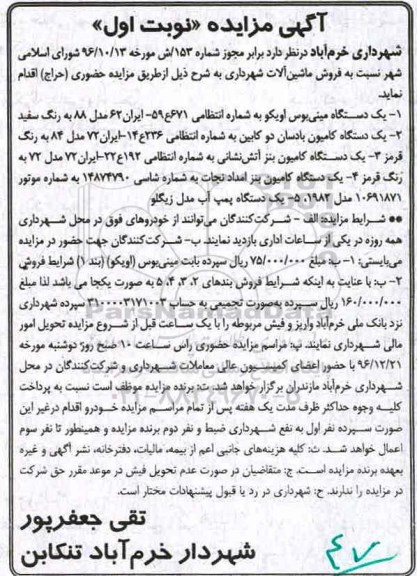 آگهی مزایده «نوبت اول»
شهرداری خرم‌آباد درنظر دارد برابر مجوز شماره ۱۵۳/ش مورخه ۹۶/۱۰/۱۳ شورای اسلامی
شهر نسبت به فروش ماشین‌آلات شهرداری به شرح ذیل ازطریق مزایده حضوری (حراج) اقدام
نماید.
۱- یک دستگاه مینی‌بوس اویکو به شماره انتظامی ۶۷۱ع۵۹- ایران۶۲ مدل ۸۸ به رنگ سفید
۲- یک دستگاه کامیون بادسان دو کابین به شماره انتظامی ۲۳۶ع۱۴-ایران۷۲ مدل ۸۴ به رنگ
قرمز ۳- یک دستگاه کامیون بنز آتش‌نشانی به شماره انتظامی ۱۹۲ع۲۲-ایران۷۲ مدل ۷۲ به
رنگ قرمز ۴- یک دستگاه کامیون بنز امداد نجات به شماره شاسی ۱۴۸۷۴۷۹۰ به شماره موتور
۱۰۶۹۱۸۷۱ مدل ۱۹۸۲، ۵- یک دستگاه پمپ آب مدل زیگلو
** شرایط مزایده: الف - شرکت‌کنندگان می‌توانند از خودروهای فوق در محل شهرداری
همه روزه در یکی از ساعات اداری بازدید نمایند. ب- شرکت‌کنندگان جهت حضور در مزایده
می‌بایستی: ۱- ب: مبلغ ۷۵/۰۰۰/۰۰۰ ریال سپرده بابت مینی‌بوس (اویکو) (بند ۱) شرایط فروش
۲- ب: با عنایت به اینکه شرایط فروش بندهای ۲، ۳، ۴، ۵ به صورت یکجا می باشد لذا مبلغ
۱۶۰/۰۰۰/۰۰۰ ریال سپرده به‌صورت تجمیعی به حساب ۳۱۰۰۰۰۳۱۷۱۰۰۳ سپرده شهرداری
نزد بانک ملی خرم‌آباد واریز و فیش مربوطه را با یک ساعت قبل از شروع مزایده تحویل امور
مالی شهرداری نمایند. پ: مراسم مزایده حضوری راس ساعت ۱۰ صبح روز دوشنبه مورخه
۹۶/۱۲/۲۱ با حضور اعضای کمیسیون عالی معاملات شهرداری و شرکت‌کنندگان در محل
شهرداری خرم‌آباد مازندران برگزار خواهد شد. ت: برنده مزایده موظف است نسبت به پرداخت
کلیه وجوه حداکثر ظرف مدت یک هفته پس از تمام مراسم مزایده خودرو اقدام درغیر این
صورت سپرده نفر اول به نفع شهرداری ضبط و نفر دوم برنده مزایده و همینطور تا نفر سوم
اعمال خواهد شد. ث: کلیه هزینه‌های جانبی اعم از بیمه، مالیات، دفترخانه، نشر آگهی و غیره
بعهده برنده مزایده است. ج: متقاضیان در صورت عدم تحویل فیش در موعد مقرر حق شرکت
در مزایده را ندارند. ح: شهرداری در رد یا قبول پیشنهادات مختار است.
تقی جعفرپور
شهردار خرم‌آباد تنکابن
ParsNamadData